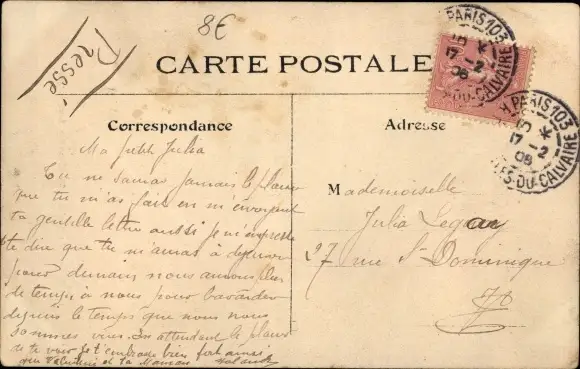 8€
Pressé
CARTE POSTALE
PARIS 103
5 *
17 - 2
06
DU-CALVAIRE
PARIS 103
5 *
17 - 2
06
LES-DU-CALVAIRE
Correspondance
Ma petite Julia
Tu ne sauras jamais le plaisir
que tu m'as fait en m'envoyant
ta gentille lettre aussi je m'empresse
te dire que tu m'amas à déjeuner
pour demain nous aurons bien
de temps à nous pour bavarder
depuis le temps que nous nous
sommes vues. En attendant le plaisir
de te voir je t'embrasse bien fort ainsi
que Valentine et ta Maman
Adresse
Mademoiselle
Julia
27 rue St Dominique